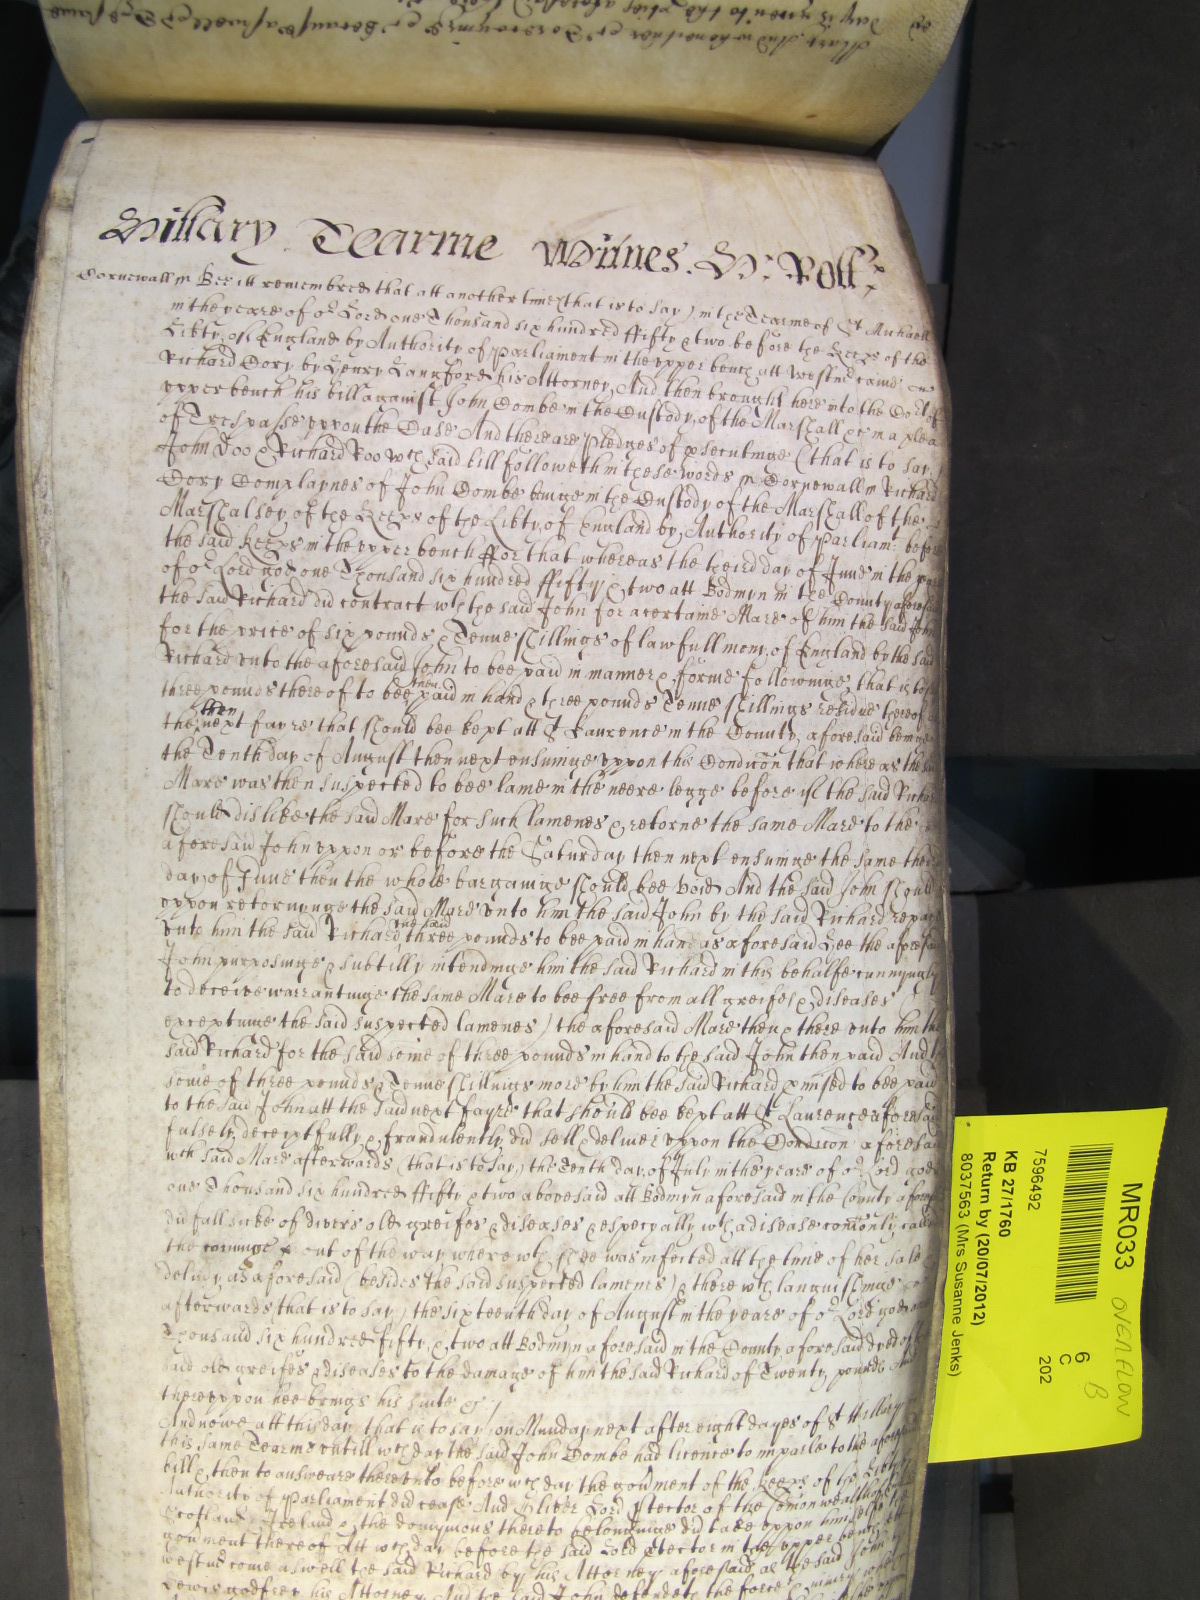 Hillary Tearme Wittnes. H: Rolle
Cornewall Bee itt remembred that att another time (that is to say) in the Tearme of St Michaell
in the yeare of or Lord one Thousand six hundred fifty & two before the Keeps of the
Libty of England by Authority of Parliament in the upper bench att Westmr came
Richard Dory by Henry Langford his Attorney And then brought here into the Cort of
upper bench his bill against John Combe in the Custody of the Marshall &c in a plea
of Trespasse uppon the Case And there are pledges of psecutinge (that is to say)
John Doo & Richard Roo wch said bill followeth in these words Cornewall Richard
Dory Complaynes of John Combe beinge in the Custody of the Marshall of the
Marshalsey of the Keeps of the Libty of England by Authority of Parliamt before
the said Keeps in the upper bench ffor that whereas the third day of June in the yeare
of or Lord god one Thousand six hundred ffifty & two att Bodmyn in the County aforesaid
the said Richard did contract wth the said John for a certaine Mare of him the said John
for the price of six pounds & Tenne shillings of lawfull mony of England by the said
Richard unto the aforesaid John to bee paid in manner & forme followinge, that is to say
three pounds thereof to bee then paid in hand & three pounds Tenne shillings residue thereof att
the then next fayre that should bee kept att St Laurence in the County aforesaid beinge
the Tenth day of August then next ensuinge uppon this Condicon that whereas the said
Mare was then suspected to bee lame in the neere legge before if the said Richard
should dislike the said Mare for such lamenes & retorne the same Mare to the
aforesaid John uppon or before the Saturday then next ensuinge the same third
day of June then the whole bargaine should bee void And the said John should
uppon retorninge the said Mare unto him the said John by the said Richard repay
unto him the said Richard the said three pounds to bee paid in hand as aforesaid Hee the aforesaid
John purposinge & subtilly intendinge him the said Richard in this behalfe cunnyngly
to deceive warrantinge the same Mare to bee free from all greifes & diseases
exceptinge the said suspected lamenes) the aforesaid Mare then & there unto him the
said Richard for the said some of three pounds in hand to the said John then paid And the
some of three pounds & Tenne shillings more by him the said Richard pmised to bee paid
to the said John att the said next fayre that should bee kept att St Laurence aforesaid
falsely, deceiptfully & fraudulently did sell & deliver uppon the Condicon aforesaid
wch said Mare afterwards (that is to say) the Tenth day of July in the yeare of or Lord god
one Thousand six hundred ffifty & two abovesaid att Bodmyn aforesaid in the County aforesaid
did fall sicke of divers old greifes & diseases & especyally wth a disease comonly called
the out of the way wherewth shee was infected att the time of her sale &
delivy as aforesaid (besides the said suspected lamenes) & therewth languishinge
afterwards that is to say) the sixteenth day of August in the yeare of or Lord god one
Thousand six hundred fifty & two att Bodmyn aforesaid in the County aforesaid dyed of the
said old greifes & diseases to the damage of him the said Richard of Twenty pounds And
thereuppon hee brings his suite &c
And nowe att this day that is to say on Munday next after eight dayes of St Hillary
this same Tearme untill wch day the said John Combe had licence to imparle to the aforesaid
bill & then to answeare thereunto before wch day the govment of the Keeps of the Libty
Authority of Parliament did cease And Oliver Lord Ptector of the Comon wealth of
Scotland & Ireland & the domynions thereto belonginge did take uppon himselfe the
govment thereof Att wch day before the said Lord Ptector in the upper bench att
westmr come aswell the said Richard by his Attorney aforesaid as the said John by
Lewis Godfrey his Attorney And the said John defendeth the force & iniury
MR033 OVERFLOW
6 B
C
202
7596492
KB 27/1760
Return by (20/07/2012)
8037563 (Mrs Susanne Jenks)